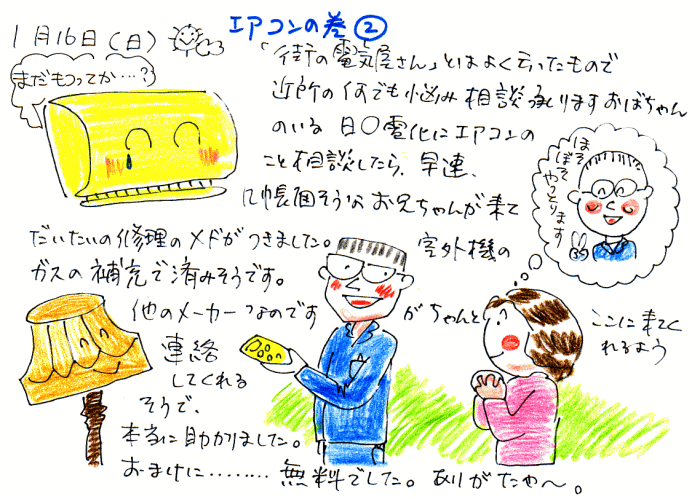 エアコンの巻②
1月16日(日)
まだもつってか…?
「街の電気屋さん」とはよく言ったもので
近所の何でも悩み相談承りますおばちゃん
のいる 日○電化にエアコンの
こと相談したら、早速、
几帳面そうなお兄ちゃんが来て
ほそぼそ
やっとります
だいたいの修理のメドがつきました。室外機の
ガスの補充で済みそうです。
他のメーカーなのですがちゃんとここに来てく
れるよう
連絡
してくれる
そうで、
本当に助かりました。
おまけに………無料でした。ありがたや〜。